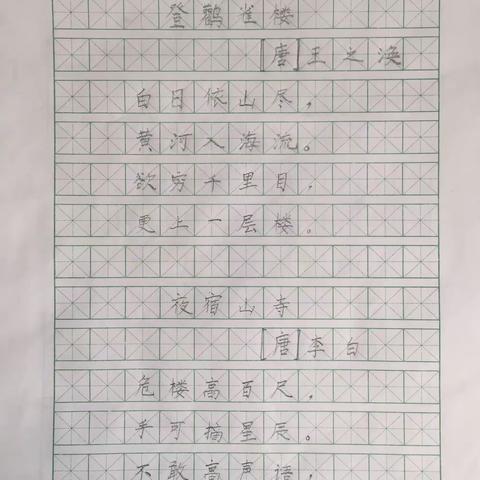 登鹳雀楼
[唐]王之涣
白日依山尽，
黄河入海流。
欲穷千里目，
更上一层楼。
夜宿山寺
[唐]李白
危楼高百尺，
手可摘星辰。
不敢高声语，